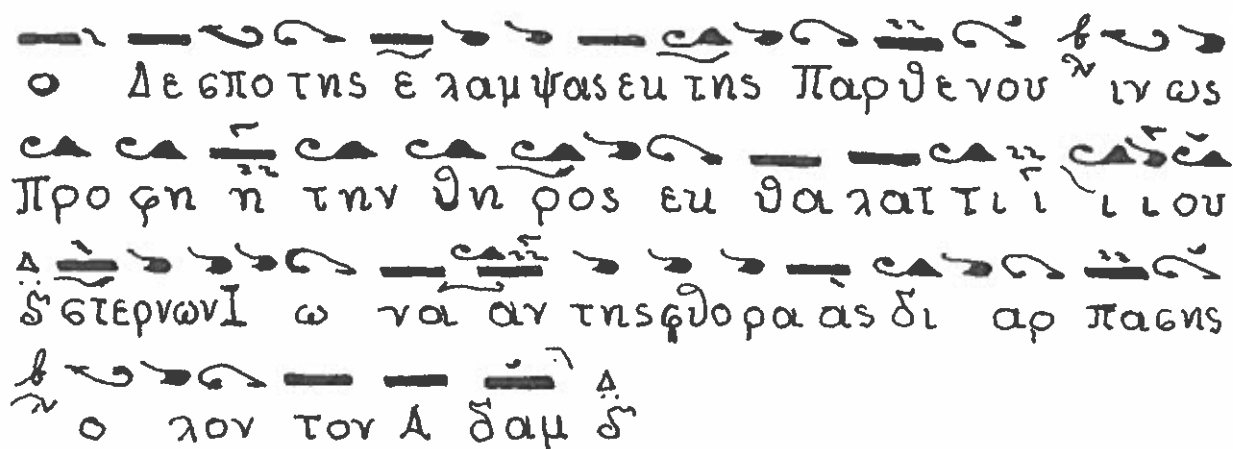 ο Δεσποτης ελαμψας εκ της Παρθενου ιν ως
Προφη η την θηρος εκ θαλαττι ι ι ι ου
Δ στερνων Ιωνα αν της φθορα ας διαρπασης
ολον τον Αδαμ Δ